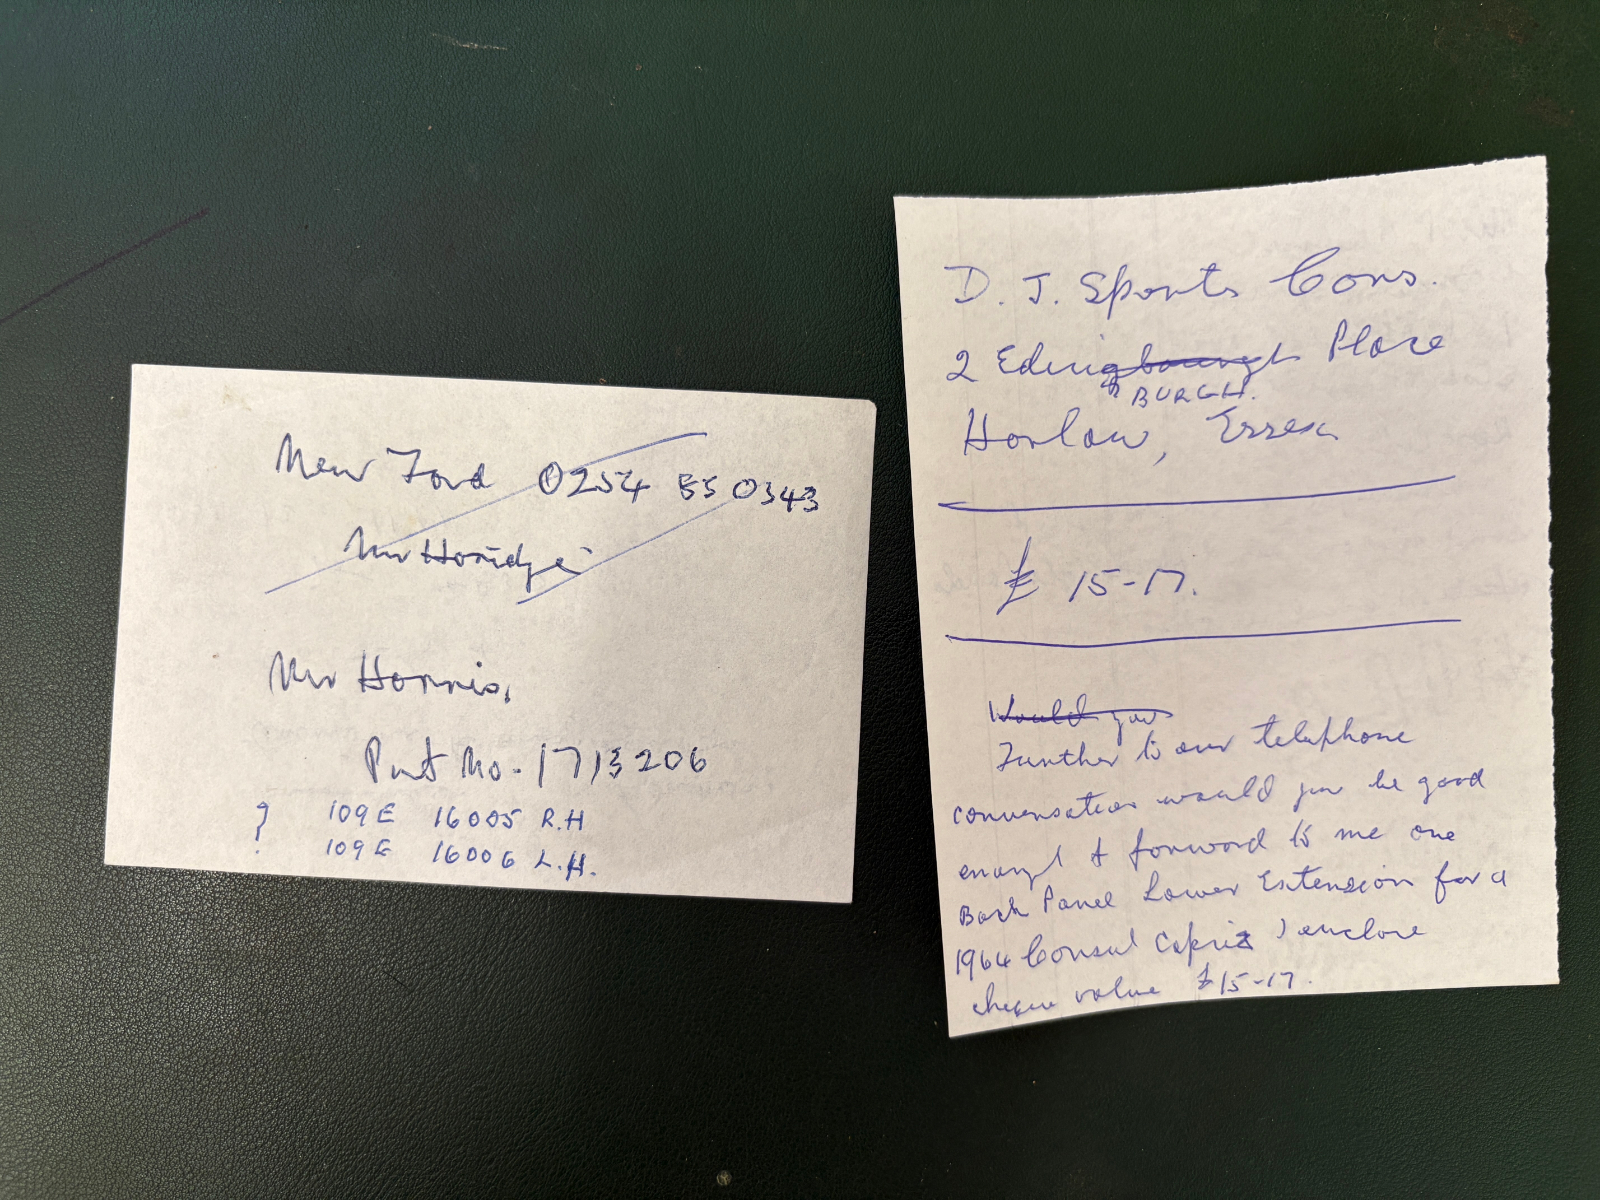 New Ford 0254 55 0343
Mr Horidge
Mr Harris,
Part No. 1713206
? 109E 16005 R.H
109E 16006 L.H.
D. J. Sports Cars.
2 Edin BURGH. Place
Harlow, Essex
£ 15-17.
Would you
Further to our telephone
conversation would you be good
enough to forward to me one
Back Panel Lower Extension for a
1964 Consul Capri I enclose
cheque value £15-17.